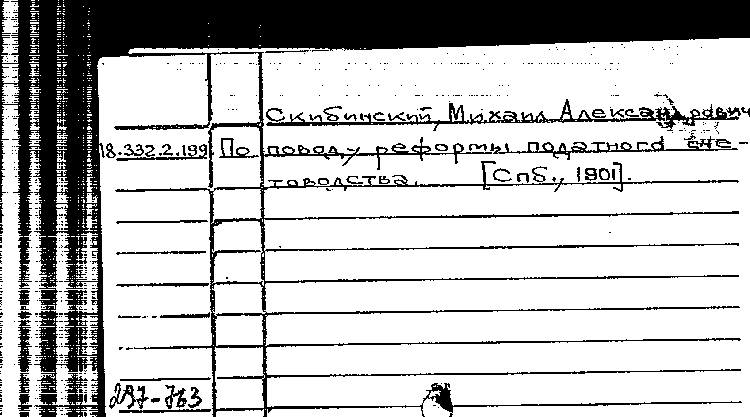 Скибинский, Михаил Александрович
18.332.2.199 По поводу реформы податного сче-
товодства. [Спб., 1901].
297-763